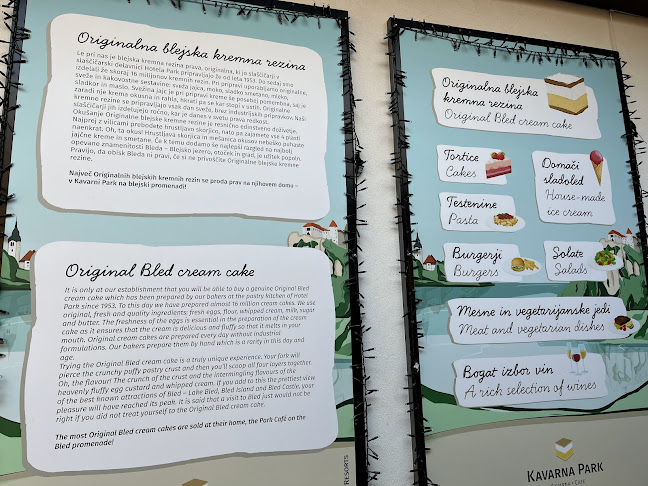 Originalna blejska kremna rezina
Le pri nas je blejska kremna rezina prava, originalna, ki jo slaščičarji v
slaščičarski delavnici Hotela Park pripravljajo že od leta 1953. Do sedaj smo
izdelali že skoraj 16 milijonov kremnih rezin. Pri pripravi uporabljamo originalne,
sveže in kakovostne sestavine: sveža jajca, moko, sladko smetano, mleko,
sladkor in maslo. Svežina jajc je pri pripravi kreme še posebej pomembna, saj je
zaradi nje krema okusna in rahla, skrati pa se kar stopi v ustih. Originalne
kremne rezine se pripravljajo vsak dan sveže, brez industrijskih pripravkov. Naši
slaščičarji jih izdelujejo ročno, kar je danes v svetu prava redkost.
Okušanje Originalne blejske kremne rezine je resnično edinstveno doživetje.
Najprej z vilicami prebodete hrustljavo skorjico, nato pa zajamete vse 4 plasti
naenkrat. Oh, ta okus! Hrustljava skorjica in mešanica okusov nebeško puhaste
jajčne kreme in smetane. Če k temu dodamo še najlepši razgled na najbolj
opevane znamenitosti Bleda – Blejsko jezero, otoček in grad, je užitek popoln.
Pravijo, da obisk Bleda ni pravi, če si ne privoščite Originalne blejske kremne
rezine.
Največ Originalnih blejskih kremnih rezin se proda prav na njihovem domu –
v Kavarni Park na blejski promenadi!
Original Bled cream cake
It is only at our establishment that you will be able to buy a genuine Original Bled
cream cake which has been prepared by our bakers at the pastry kitchen of Hotel
Park since 1953. To this day we have prepared almost 16 million cream cakes. We use
original, fresh and quality ingredients: fresh eggs, flour, whipped cream, milk, sugar
and butter. The freshness of the eggs is essential in the preparation of the cream
cake as it ensures that the cream is delicious and fluffy so that it melts in your
mouth. Original cream cakes are prepared every day without industrial
formulations. Our bakers prepare them by hand which is a rarity in this day and
age.
Trying the Original Bled cream cake is a truly unique experience. Your fork will
pierce the crunchy puffy pastry crust and then you'll scoop all four layers together.
Oh, the flavour! The crunch of the crust and the intermingling flavours of the
heavenly fluffy egg custard and whipped cream. If you add to this the prettiest view
of the best known attractions of Bled – Lake Bled, Bled Island and Bled Castle, your
pleasure will have reached its peak. It is said that a visit to Bled just would not be
right if you did not treat yourself to the Original Bled cream cake.
The most Original Bled cream cakes are sold at their home, the Park Café on the
Bled promenade!
RESORTS
Originalna blejska
kremna rezina
Original Bled cream cake
Tortice
Cakes
Domači
sladoled
House-made
ice cream
Testenine
Pasta
Burgerji
Burgers
Solate
Salads
Mesne in vegetarijanske jedi
Meat and vegetarian dishes
Bogat izbor vin
A rich selection of wines
KAVARNA PARK